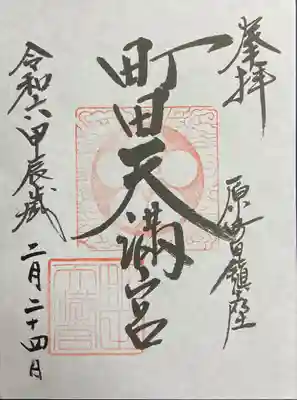 奉拝
原町田鎮座
町田天満宮
令和六甲辰歳 二月二十四日